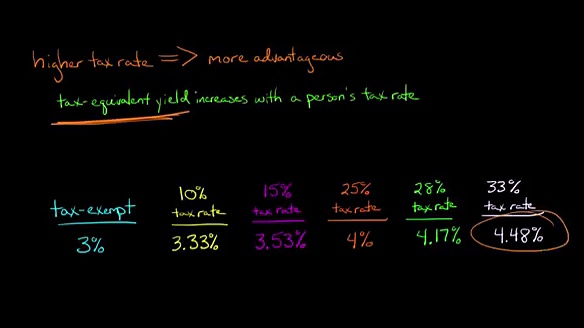 higher tax rate => more advantageous
tax-equivalent yield increases with a person's tax rate
tax-exempt
3%
10%
tax rate
3.33%
15%
tax rate
3.53%
25%
tax rate
4%
28%
tax rate
4.17%
33%
tax rate
4.48%